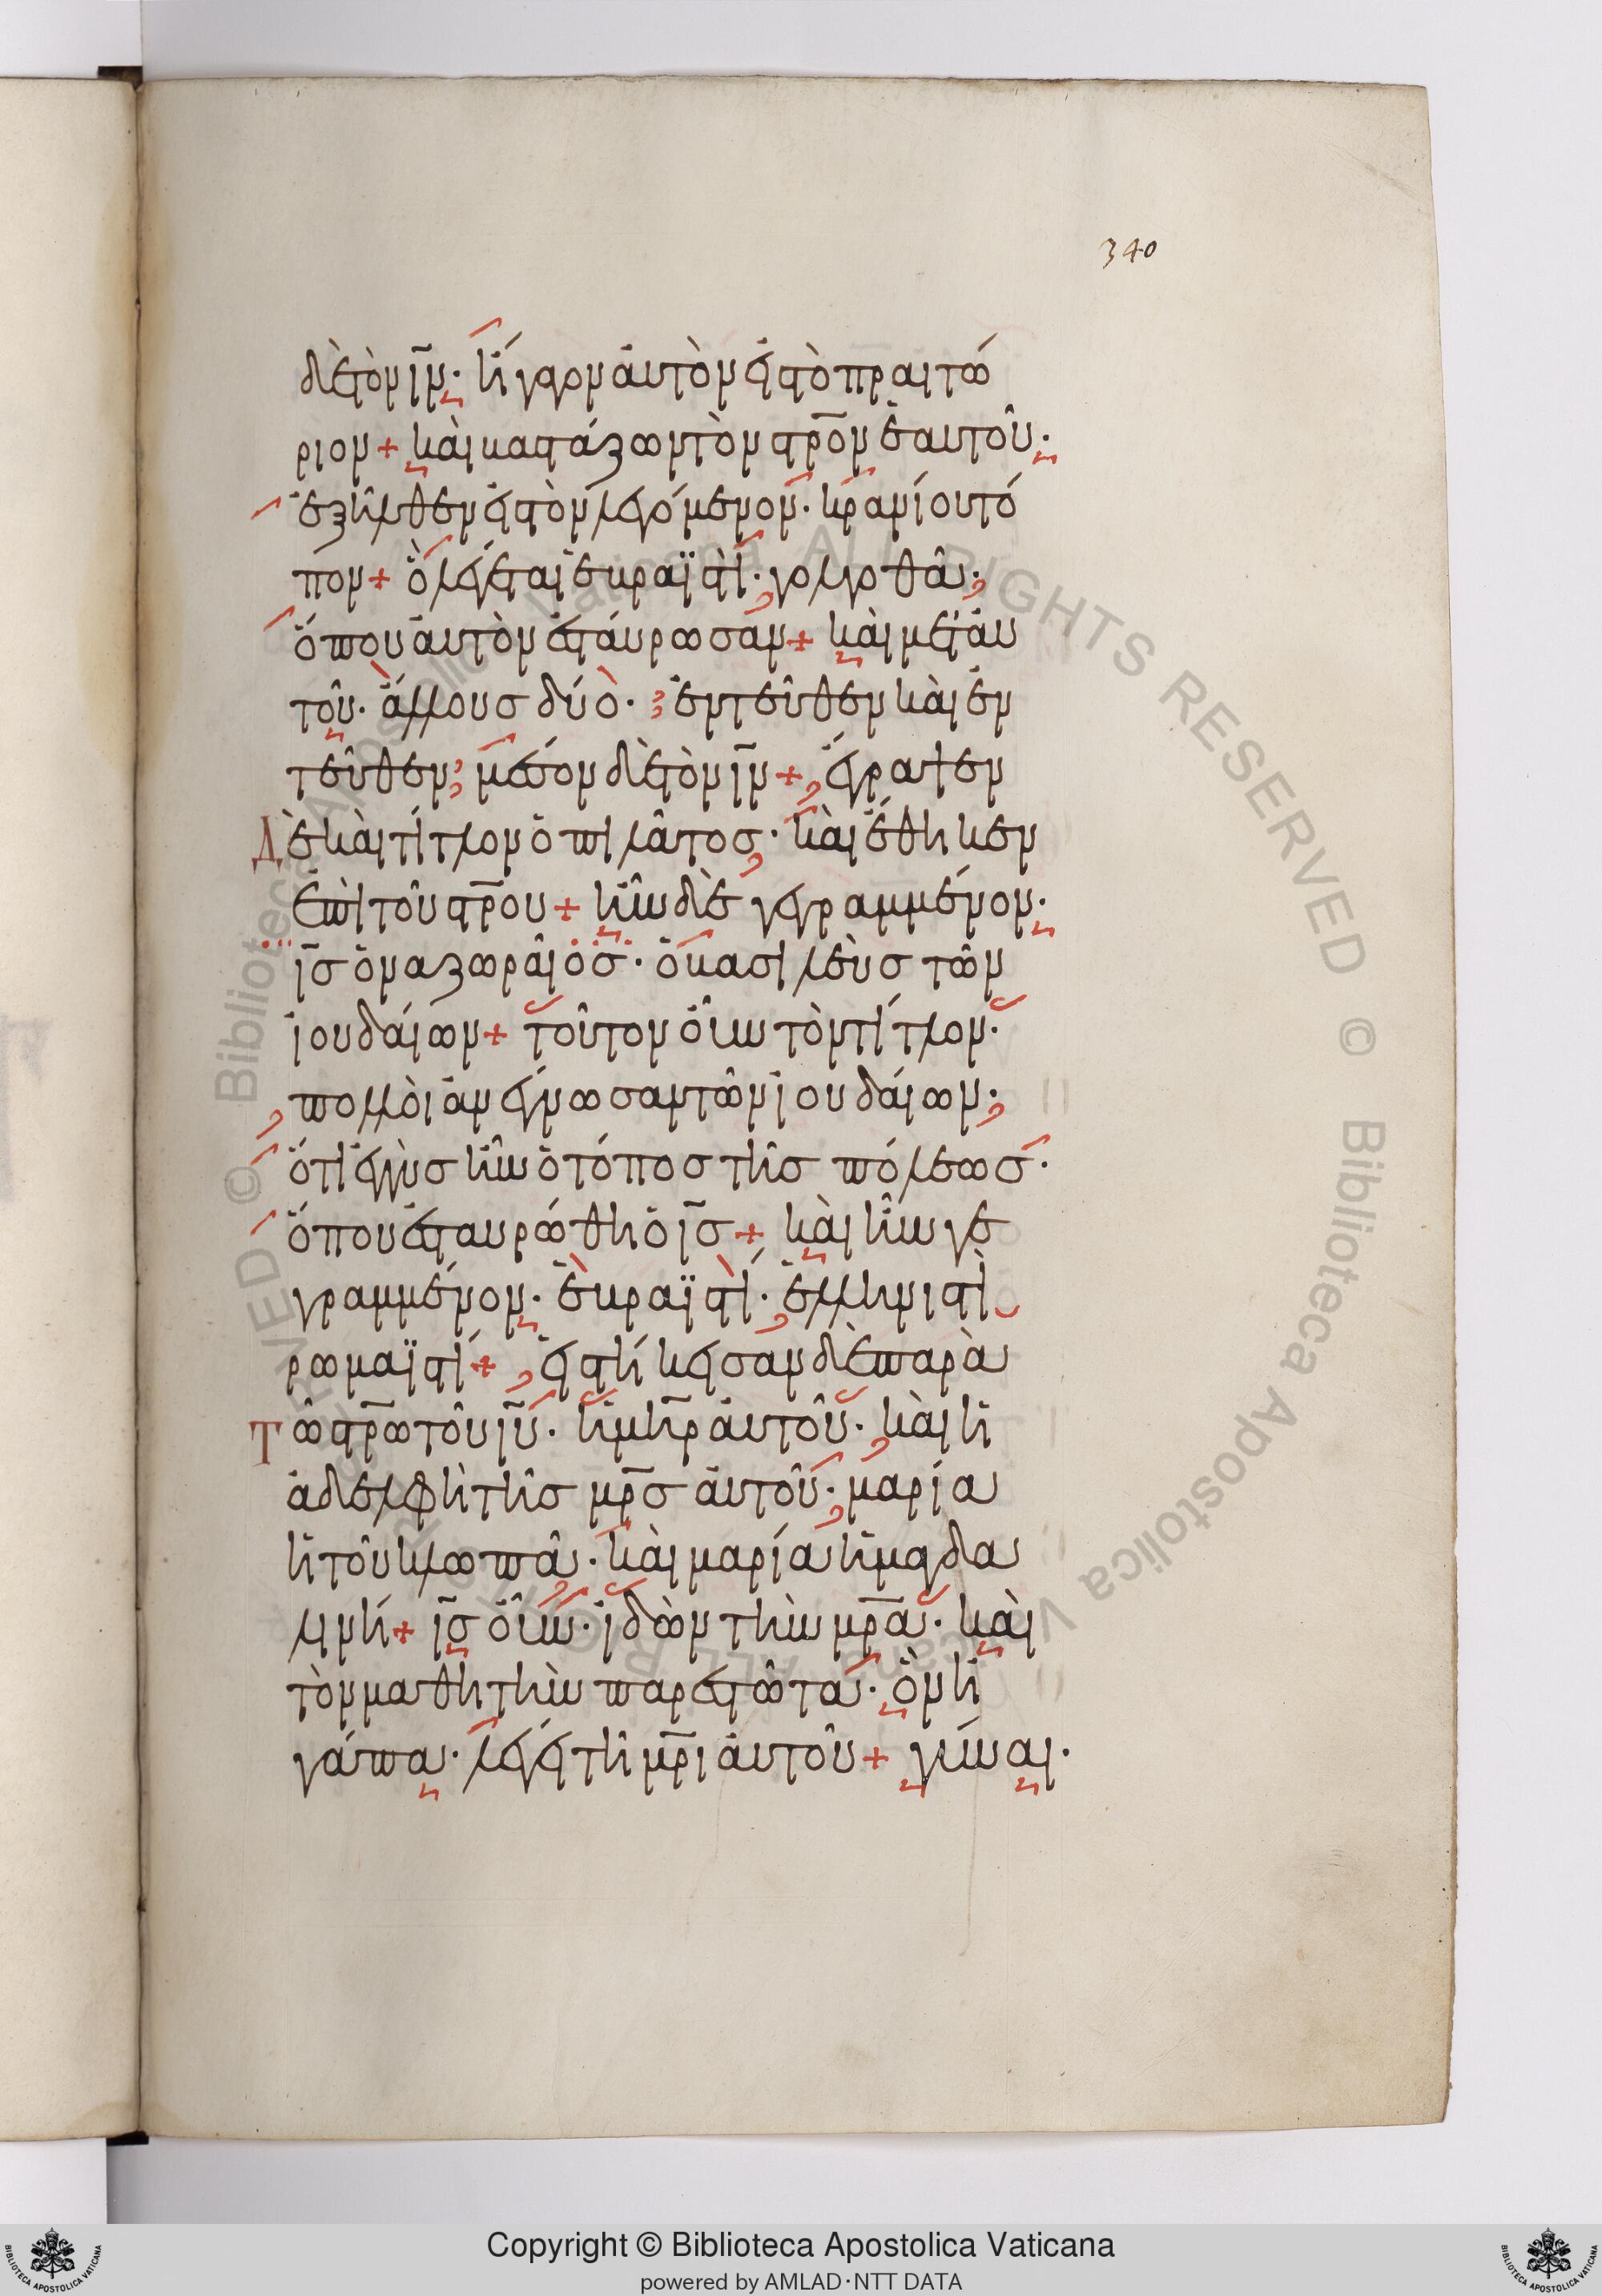 340
δὲ τὸν ἰ̅ν̅· ἤγαγον ἀυτὸν ἐις τὸ πραιτώ
ριον + καὶ βαστάζων τὸν στρ̅ον ἑαυτοῦ·
ἐξῆλθεν ἐις τὸν λεγόμενον· κρανίου τό
πον + ὃ λέγεται ἑβραϊστὶ· γολγοθᾶ·
ὅπου ἀυτὸν ἐσταύρωσαν + καὶ μετ' ἀυ
τοῦ· ἄλλους δύο· ἐντεῦθεν καὶ ἐν
τεῦθεν· μέσον δὲ τὸν ἰ̅ν̅ + ἔγραψεν
Δὲ καὶ τίτλον ὁ πιλᾶτος· καὶ ἔθηκεν
ἐπὶ τοῦ στρ̅ου + ἦν δὲ γεγραμμένον·
ἰ̅ς̅ ὁ ναζωραῖος· ὁ βασιλεὺς τῶν
ἰουδαίων + τοῦτον οὖν τὸν τίτλον·
πολλοὶ ἀνέγνωσαν τῶν ἰουδαίων·
ὅτι ἐγγὺς ἦν ὁ τόπος τῆς πόλεως·
ὅπου ἐσταυρώθη ὁ ἰ̅ς̅ + καὶ ἦν γε
γραμμένον· ἑβραϊστὶ· ἑλληνιστὶ
ρωμαϊστί + ἑιστήκεισαν δὲ παρὰ
Τῶ στρ̅ω τοῦ ἰ̅υ̅· ἡ μη̅ρ ἀυτοῦ· καὶ ἡ
ἀδελφὴ τῆς μρ̅ς ἀυτοῦ· μαρία
ἡ τοῦ κλωπᾶ· καὶ μαρία ἡ μαγδα
ληνή + ἰ̅ς̅ οὖν· ἰδὼν τὴν μρ̅α· καὶ
τὸν μαθητὴν παρεστῶτα· ὃν ἠ
γάπα· λέγει τῆ μρ̅ι ἀυτοῦ + γύναι·
Copyright © Biblioteca Apostolica Vaticana
powered by AMLAD·NTT DATA
© Biblioteca Apostolica Vaticana ALL RIGHTS RESERVED © Biblioteca Apostolica Vaticana ALL RIGHTS RESERVED